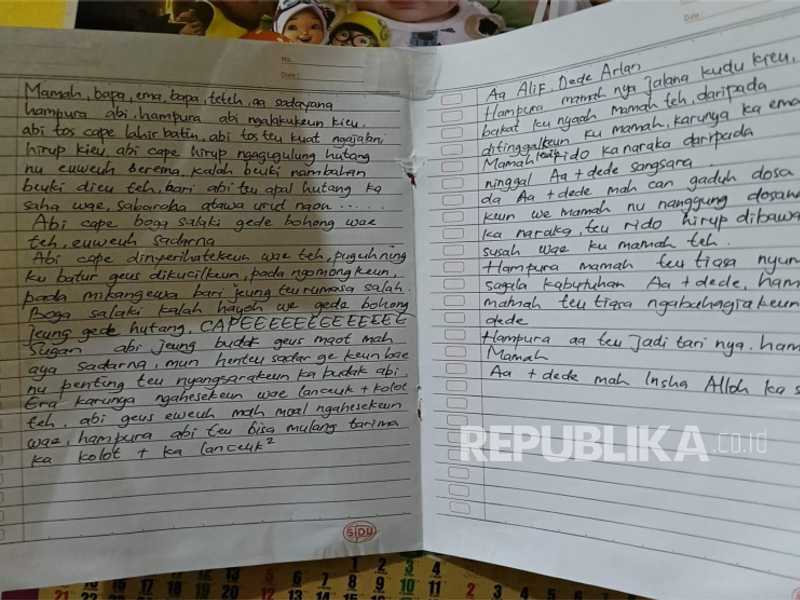 No.
Date :
Mamah, bapa, ema, bapa, teteh, aa sadayana
hampura abi, hampura abi ngalakukeun kieu.
abi tos cape lahir batin, abi tos teu kuat ngajalani
hirup kieu, abi cape hirup ngagugulung hutang
nu euweuh bereṣna, kalah beuki nambahan
beuki dieu teh, bari abi teu apal hutang ka
saha wae, sabaraha atawa urud naon .....
Abi cape boga salaki gede bohong wae
teh, euweuh sadarna
Abi cape dinyerihatekeun wae teh, puguh nung
ku batur geus dikucilkeun, pada ngomongkeun,
pada mikangewa bari jeung teu rumasa salah.
Boga salaki kalah hayoh we gede bohong
jeung gede hutang, CAPEEEEEEEEEEEEEE
Sugan abi jeung budak geus maot mah
aya sadarna, mun henteu sadar ge keun bae
nu penting teu nyangsarakeun ka budak abi.
Era karunya ngahesekeun wae lanceuk + kolot
teh, abi geus euweuh mah moal ngahesekeun
wae, hampura abi teu bisa mulang tarima
ka kolot + ka lanceuk²
SIDU
Date :
Aa Alif, Dede Arlan
Hampura mamah nya jalana kudu kieu,
bakat ku nyaah mamah teh, daripada
ditinggalkeun ku mamah, karunya ka ema
Mamah rido ka naraka daripada
ninggal Aa + dede sangsara
da Aa + dede mah can gaduh dosa
keun we Mamah nu nanggung dosana
ka naraka, teu rido hirup dibawa
susah wae ku mamah teh.
Hampura mamah teu tiasa nyun
sagala kabutuhan Aa + dede, ham
mamah teu tiasa ngabahagiakeun
dede
Hampura aa teu jadi tari nya. ham
Mamah
Aa + dede mah Insha Alloh ka s
REPUBLIKA.co.id